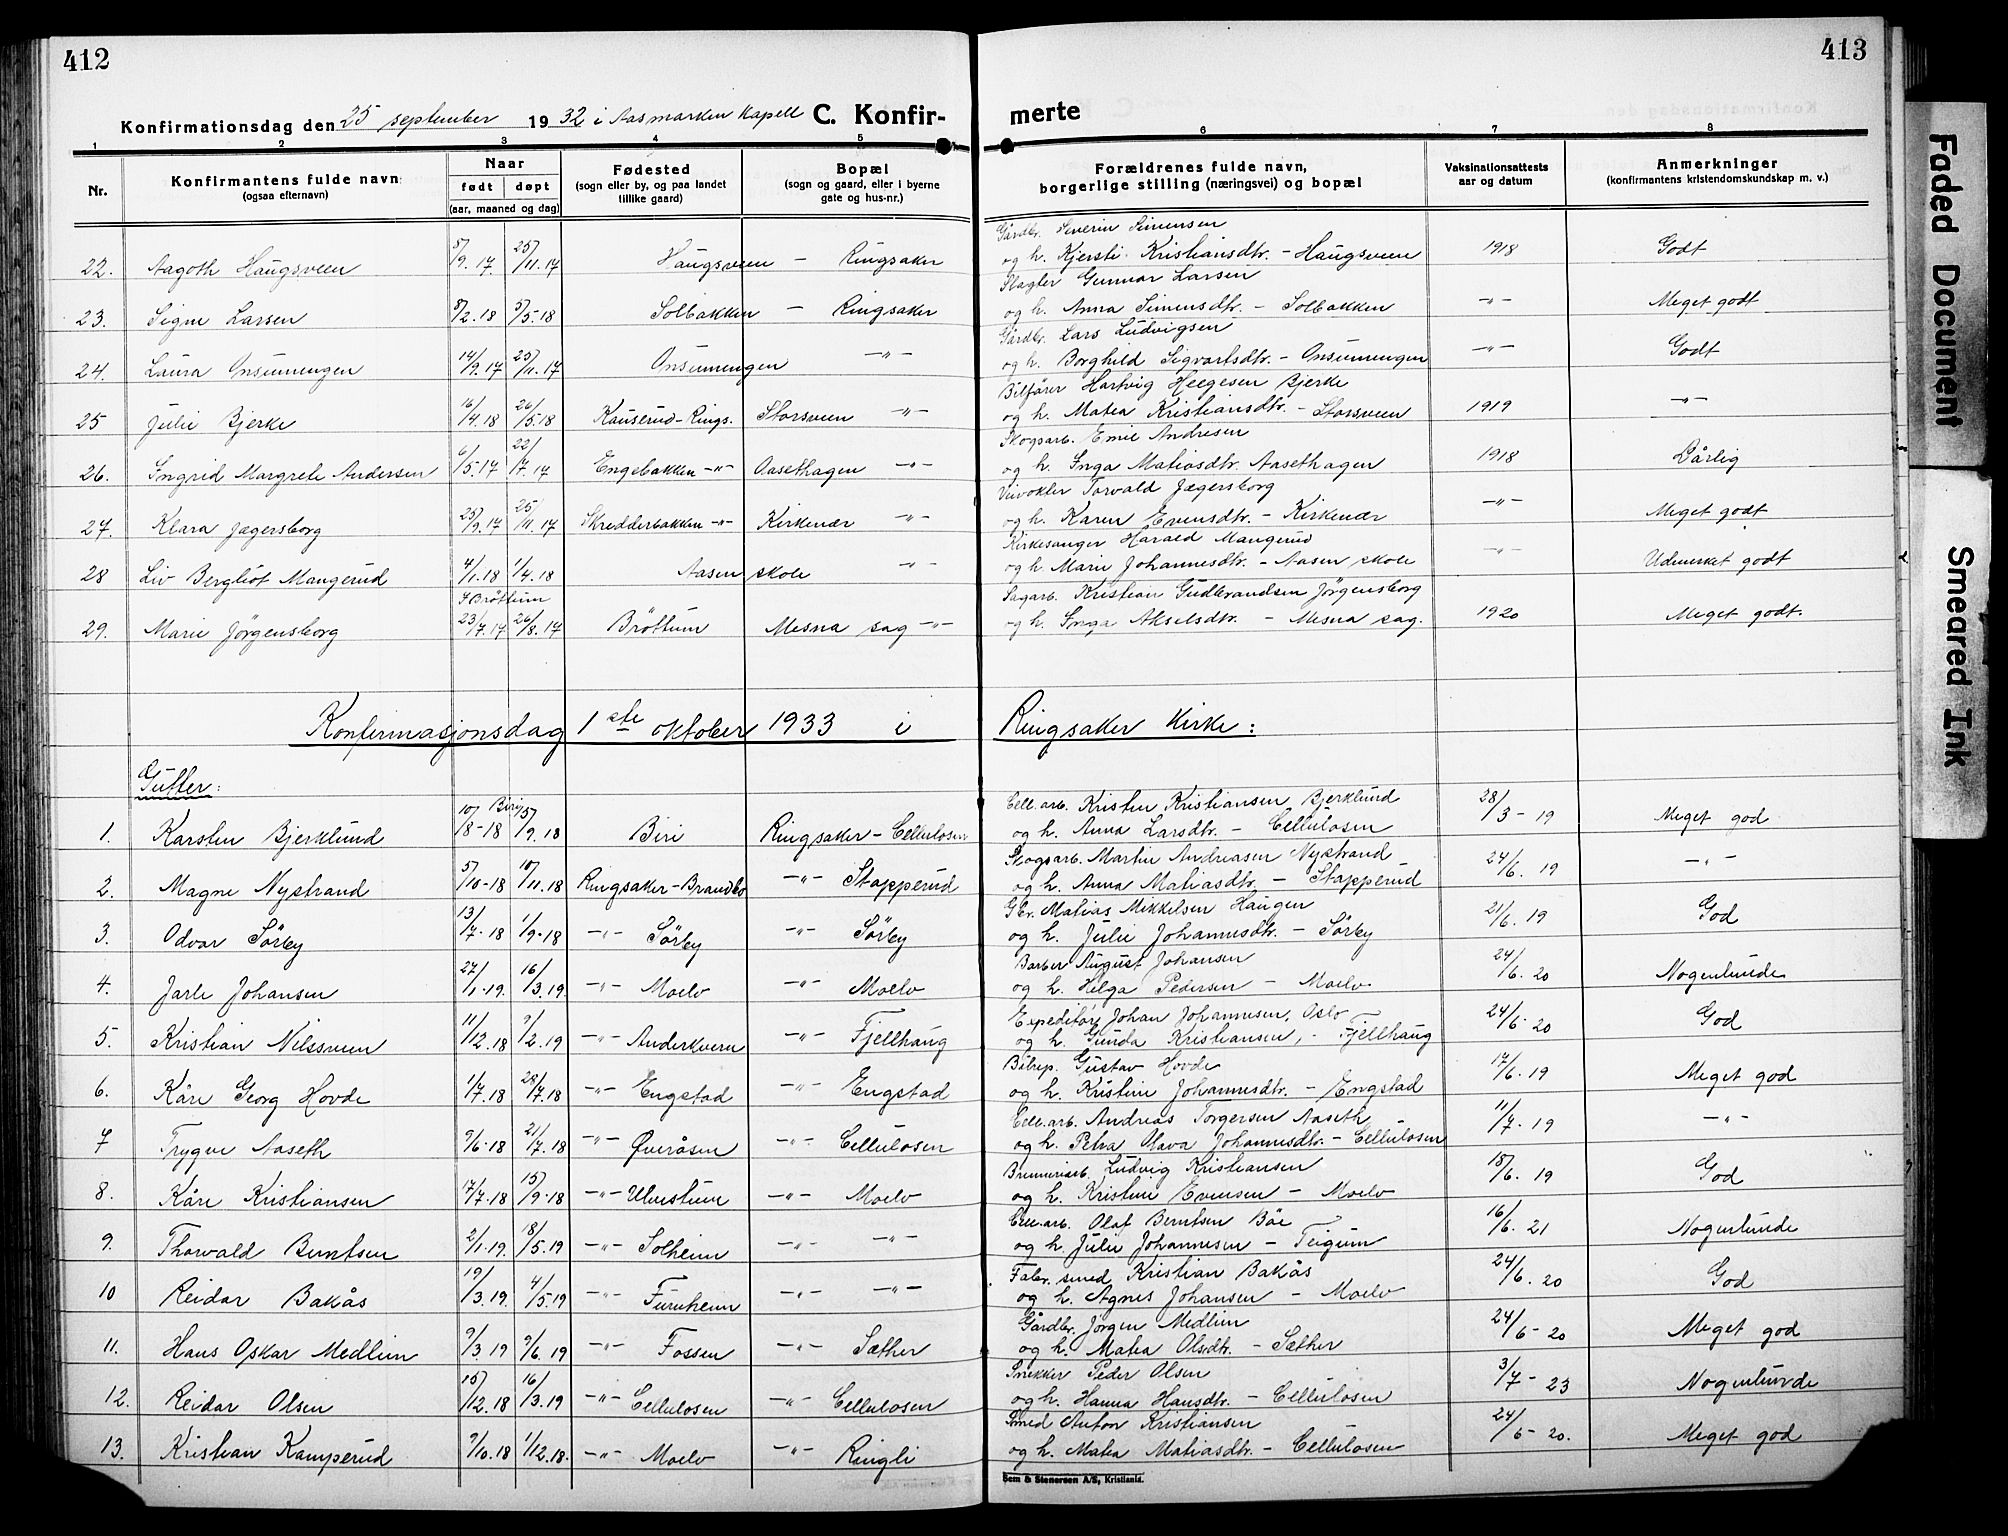 412
413
Konfirmationsdag den 25 september 1932 i Aasmarken Kapell C. Konfir-
merte
1 2 3 4 5 6 7 8
Nr.
Konfirmantens fulde navn
(ogsaa efternavn)
Naar
født døpt
(aar, maaned og dag)
Fødested
(sogn eller by, og paa landet
tillike gaard)
Bopæl
(sogn og gaard, eller i byerne
gate og hus-nr.)
Forældrenes fulde navn,
borgerlige stilling (næringsvei) og bopæl
Vaksinationsattests
aar og datum
Anmerkninger
(konfirmantens kristendomskundskap m. v.)
Gårdbr. Severin Simensen
22. Aagoth Haugsveen 5/9.17 25/11.17 Haugsveen - Ringsaker og h. Kjersti Kristiansdtr. - Haugsveen 1918 Godt
Slagter Gunnar Larsen
23. Signe Larsen 8/2.18 5/5.18 Solbakken - Ringsaker og h. Anna Simensdtr. - Solbakken -"- Meget godt
Gårdbr. Lars Ludvigsen
24. Laura Onsumengen 14/9.17 25/11.17 Onsumengen -"- og h. Borghild Sigvartsdtr. - Onsumengen -"- Godt
Bilfører Hartvig Helgesen Bjerke
25 Julie Bjerke 16/4.18 26/5.18 Kauserud-Rings. Storsveen -"- og h. Matea Kristiansdtr. - Storsveen 1919 -"-
Skogsarb. Emil Andresen
26. Ingrid Margrete Andersen 6/5.17 22/7.17 Engebakken -"- Aasethagen -"- og h. Inga Matiasdtr. Aasethagen 1918 Dårlig
Torvald Jægersborg
27. Klara Jægersborg 25/9.17 25/11.17 Skredderbakken -"- Kirkenær -"- og h. Karen Evensdtr. - Kirkenær -"- Meget godt
Kirkesanger Harald Mangerud
28 Liv Bergliot Mangerud 4/1.18 1/4.18 Aasen skole -"- og h. Marie Johannesdtr. - Aasen skole -"- Udmerket godt
I Brøttum
Sagarb. Kristian Gudbrandsen Jörgensborg
29. Marie Jörgensborg 23/7.17 26/8.17 Bröttum Mesna sag -"- og h. Inga Akselsdtr. - Mesna sag. 1920 Meget godt.
Konfirmasjonsdag 1ste oktober 1933 i Ringsaker Kirke:
Gutter:
Biri
Cell.arb. Kristen Kristiansen Bjerklund
1. Karsten Bjerklund 10/8-18 15/9.18 Biri Ringsaker - Cellulosen og h. Anna Larsdtr. - Cellulosen 28/3-19 Meget god
Skogsarb. Martin Andreasen Nystrand
2. Magne Nystrand 5/10-18 10/11.18 Ringsaker-Brandbo -"- Stapperud og h. Anna Matiasdtr. - Stapperud 24/6.19 -"-
Gbr. Matias Mikkelsen Haugen
3. Odvar Sörby 13/7-18 1/9-18 -"- Sörby -"- Sörby og h. Julie Johannesdtr. - Sörby 21/6.19 God
Barber August Johansen
4. Jarle Johansen 27/1.19. 16/3.19. -"- Moelv -"- Moelv og h. Helga Pedersen - Moelv 24/6.20 Nogenlunde
Expeditör Johan Johannesen, Oslo
5. Kristian Nilssveen 11/12.18 9/2.19 -"- Anderkvern -"- Fjellhaug og h. Gunda Kristiansen, - Fjellhaug 24/6-20 God
Bilrep. Gustav Hovde
6. Kåre Georg Hovde 1/7.18 28/7.18 -"- Engstad -"- Engstad og h. Kristine Johannesdtr. - Engstad 17/6.19 Meget god
Cell.arb. Andreas Torgersen Aaseth
7 Trygve Aaseth 9/6-18 21/7.18 -"- Överåsen -"- Cellulosen og h. Petra Olava Johannesdtr. - Cellulosen 11/7.19 -"-
Ludvig Kristiansen
8. Kåre Kristiansen 17/7.18 15/9-18 -"- -"- Moelv og h. Kristine Evensen - Moelv 18/6.19 God
Cell.arb. Olaf Berntsen Böe
9. Thorvald Berntsen 2/1.19. 18/5.19 -"- Solheim -"- -"- og h. Julie Johannesen - Teigum 16/6.21 Nogenlunde
Fabr. smed Kristian Bakås
10 Reidar Bakås 19/3.19. 4/5.19 -"- Furuheim -"- -"- og h. Agnes Johansen - Moelv 24/6.20 God
Gårdbr. Jörgen Medlien
11. Hans Oskar Medlien 9/3.19 9/6.19 -"- Fossen -"- Sæther og h. Matea Olsdtr. - Sæther 24/6-20 Meget god
Snekker Peder Olsen
12. Reidar Olsen 15/12.18 16/3.19 -"- Cellulosen -"- Cellulosen og h. Hanna Hansdtr. - Cellulosen 3/7-23 Nogenlunde
Smed Anton Kristiansen
13. Kristian Kamperud 9/10.18 1/12.18. -"- Moelv -"- Ringli og h. Matea Matiasdtr. - Cellulosen 24/6-20. Meget god
Sem & Stenersen A/S, Kristiania.
Faded Document
Smeared Ink